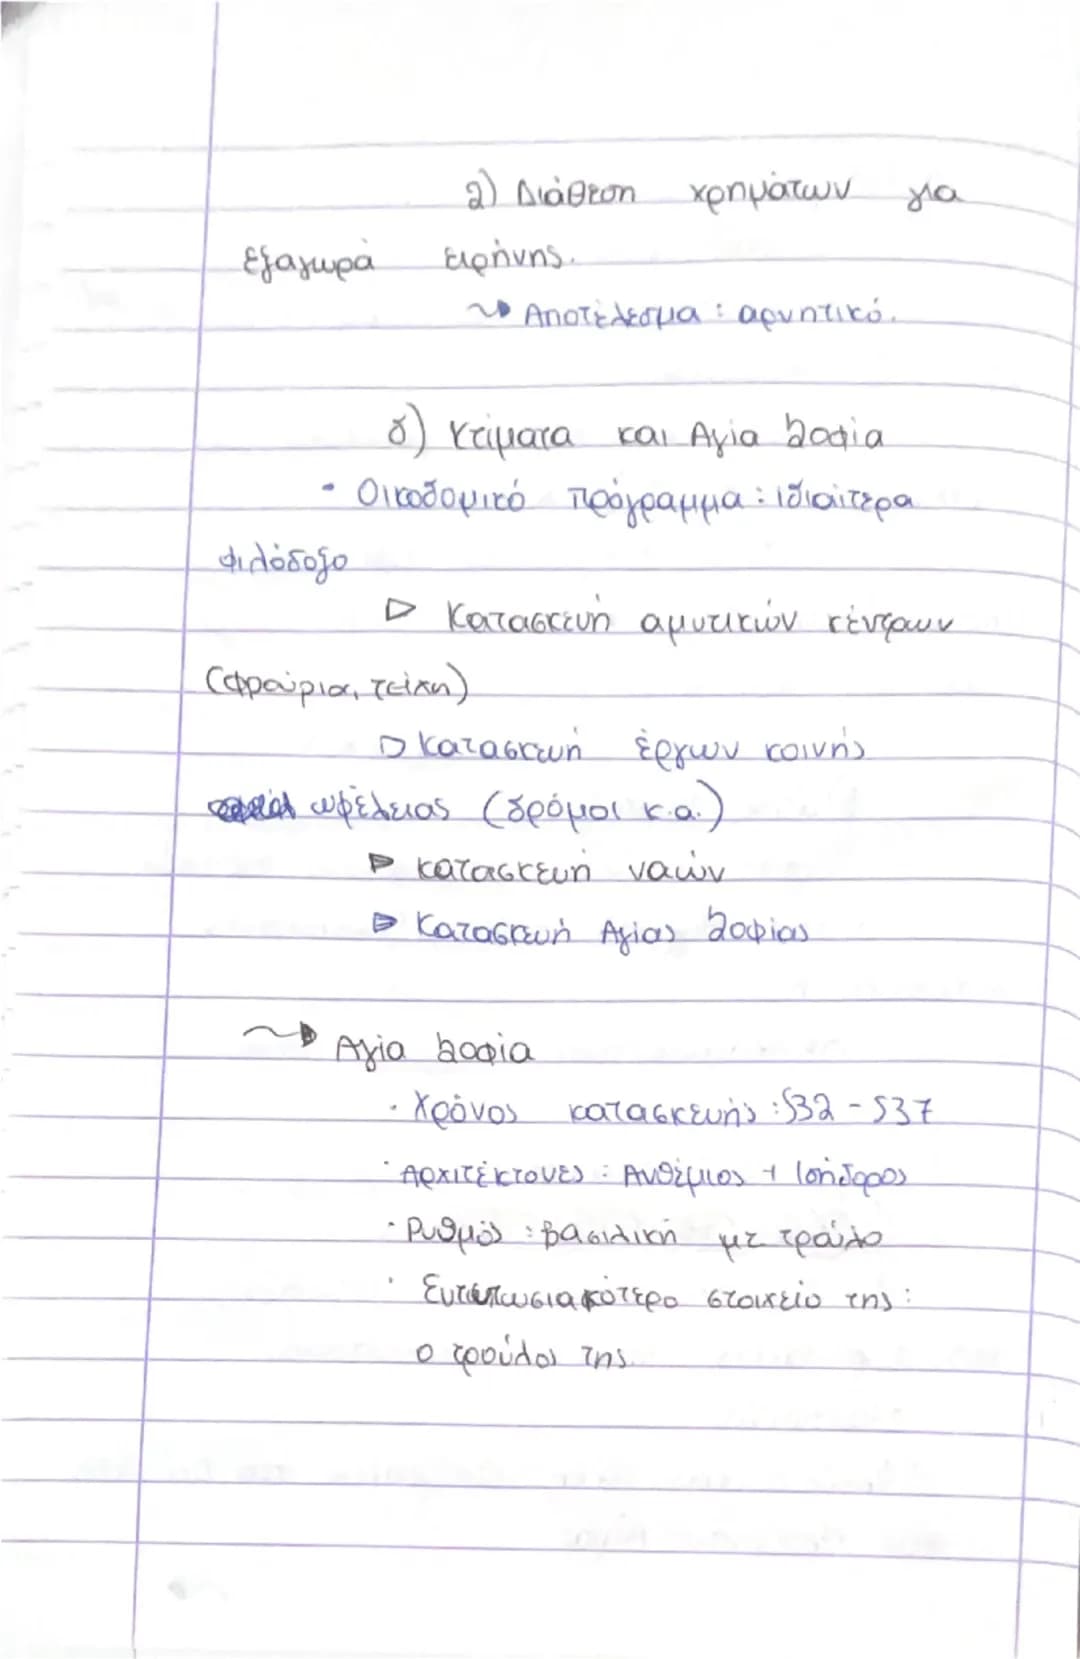 2) Διάθεση χρημάτων για
εξαγωρά ειρήνης.
Αποτέλεσμα : αρνητικό.
δ) Κτίματα και Αγία Σοφία
• Οικοδομικό πρόγραμμα : ιδιαίτερα
φιλόδοξο
▷ Κατασκευή αμυτικών κέντρων
(φρούρια, τείχη)
▷ Κατασκευή έργων κοινής
ωφέλειας (δρόμοι κ.α.)
▷ κατασκευή ναών
▷ Κατασκευή Αγίας Σοφίας
Αγία Σοφία
· Χρόνος κατασκευής : 532 - 537
· Αρχιτέκτονες : Ανθέμιος + Ισήδορος
· Ρυθμός : βασιλική με τρούλο
· Εντυπωσιακότερο στοιχείο της :
ο τρούλος της.